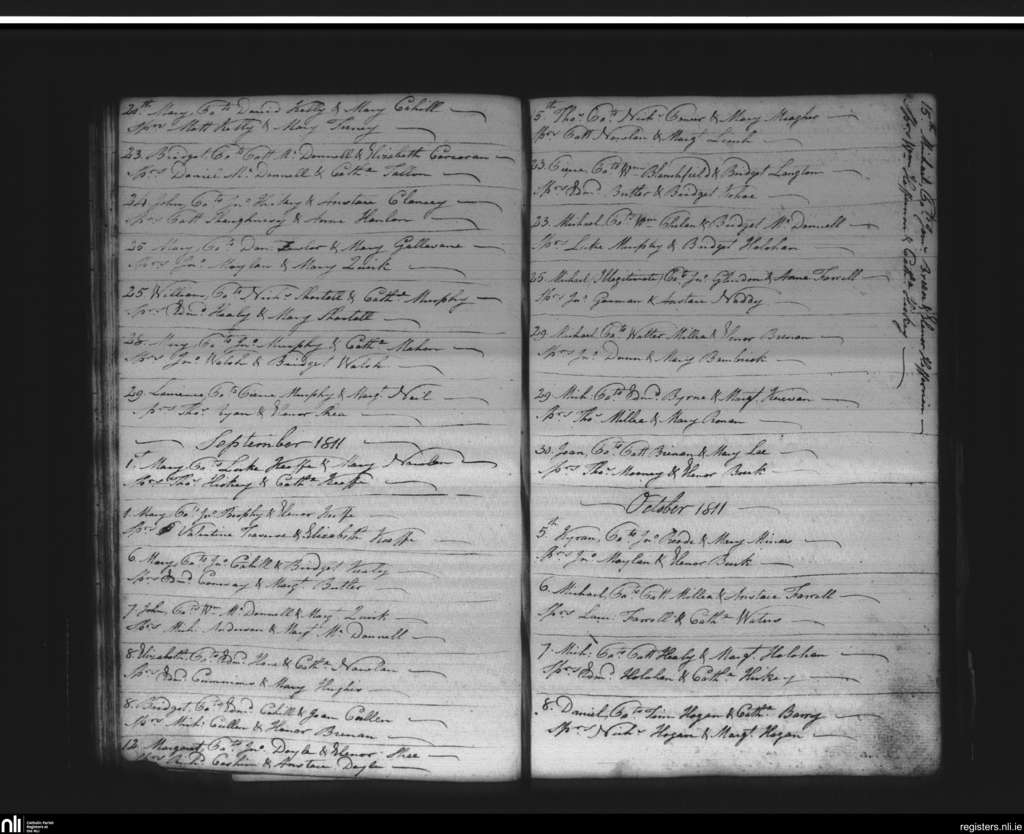 24th Mary, Co. to Daniel Kelly & Mary Cahill
Sprs Matt Kelly & Mary Tierney
23. Bridget Co. to Catt Mc Donnell & Elizabeth Corcoran
Sprs Daniel Mc Donnell & Cathe Tallon
24 John, Co. to Jno Hickey & Anstace Clansey
Sprs Catt Shaughnessy & Anne Hanlon
25 Mary, Co. to Dan & Mary Gullevane
Sprs Jno Moylan & Mary Quirk
25 William, Co. to Nichs Shortell & Cathe Murphy
Sprs Edmd Healy & Mary Shortell
28. Mary Co. to Jno Murphy & Cathe Mahon
Sprs Jno Walsh & Bridget Walsh
29 Lawrence, Co. to Murphy & Margt Neil
Sprs Thos Ryan & Elenor Shea
September 1811
1st Mary Co. to Luke Keeffe & Mary Nowlan
Sprs Thos Hickey & Cathe Keeffe
1. Mary Co. to Jno Brophy & Elenor Keeffe
Sprs Valentine & Elizabeth Keeffe
6 Mary, Co. to Jno Cahill & Bridget Healy
Sprs Edmd Conway & Margt Butler
7 John, Co. to Wm Mc Donnell & Margt Quirk
Sprs Mich: Anderson & Margt Mc Donnell
8 Elizabeth, Co. to Edmd & Cathe Nowlan
Sprs Edmd Cummins & Mary Hughes
8. Bridget, Co. to Edmd Cahill & Joan Cullen
Sprs Mich: Cullen & Honor Brenan
12 Margaret, Co. to Jno Doyle & Elenor Shee
Sprs & Anstace Doyle
5th Thos Co. to Nich: & Mary Meagher
Sprs Catt Nowlan & Margt
23 Co. to Wm Blanchfield & Bridget Langton
Sprs Edmd Butler & Bridget
23. Michael Co. to Wm Phelan & Bridget Mc Donnell
Sprs Luke Murphy & Bridget Holohan
25 Michael Illegitimate, Co. to Jno Glindon & Anne Farrell
Sprs Jno Gorman & Anstace Neddy
29 Michael Co. to Walter Millea & Elenor Brenan
Sprs Jno Dunn & Mary Bambrick
29 Mich: Co. to Edmd Byrne & Margt Kerevan
Sprs Thos Millea & Mary Ronan
30. Joan, Co. to Catt Brenan & Mary Lee
Sprs Thos Mooney & Elenor Burk
October 1811
5th Kyran, Co. to Jno Roode & Mary
Sprs Jno Moylan & Elenor Burk
6 Michael, Co. to Catt Millea & Anstace Farrell
Sprs Farrell & Cathe Waters
7. Mich: Co. to Catt Healy & Margt Holohan
Sprs Edmd Holohan & Cathe Hickey
8. Daniel, Co. to Hogan & Cathe Barry
Sprs Nichs Hogan & Margt Hogan
15th Michael, Co. to Brien & Elenor Heffernan
Sprs Wm Heffernan & Cathe Hickey
nli
Catholic Parish
Registers at
the NLI
registers.nli.ie